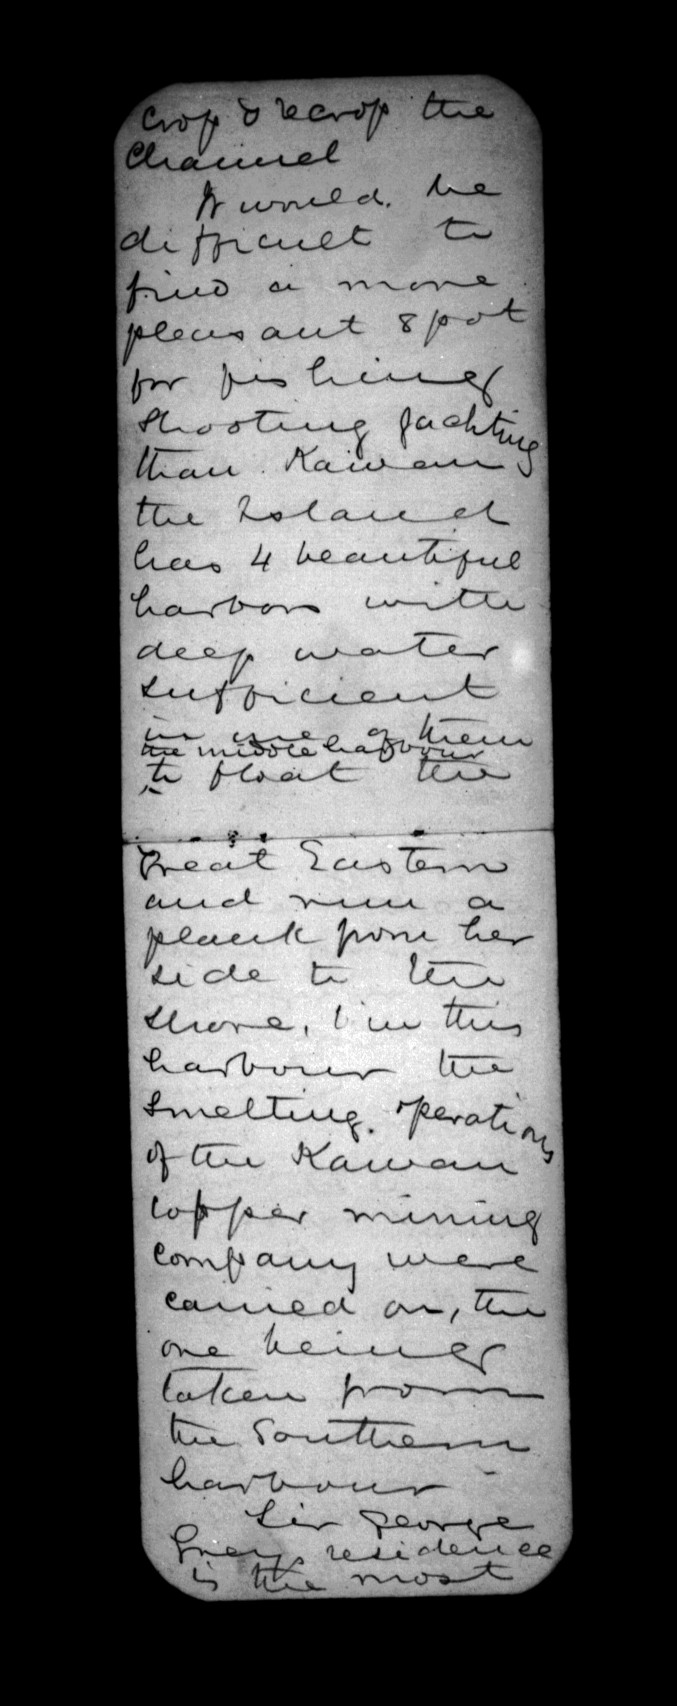 Crop & recrop the
Channel
It would be
difficult to
find a more
pleasant spot
for fishing
shooting yachting
than Kawau
the Island
has 4 beautiful
harbors with
deep water
sufficient
in one of them
the middle harbour
to float the
Great Eastern
and run a
plank from her
side to the
shore, in this
harbour the
smelting operations
of the Kawau
copper mining
company were
carried on, the
one being
taken from
the Southern
harbour -
Sir George
Grey residence
is the most